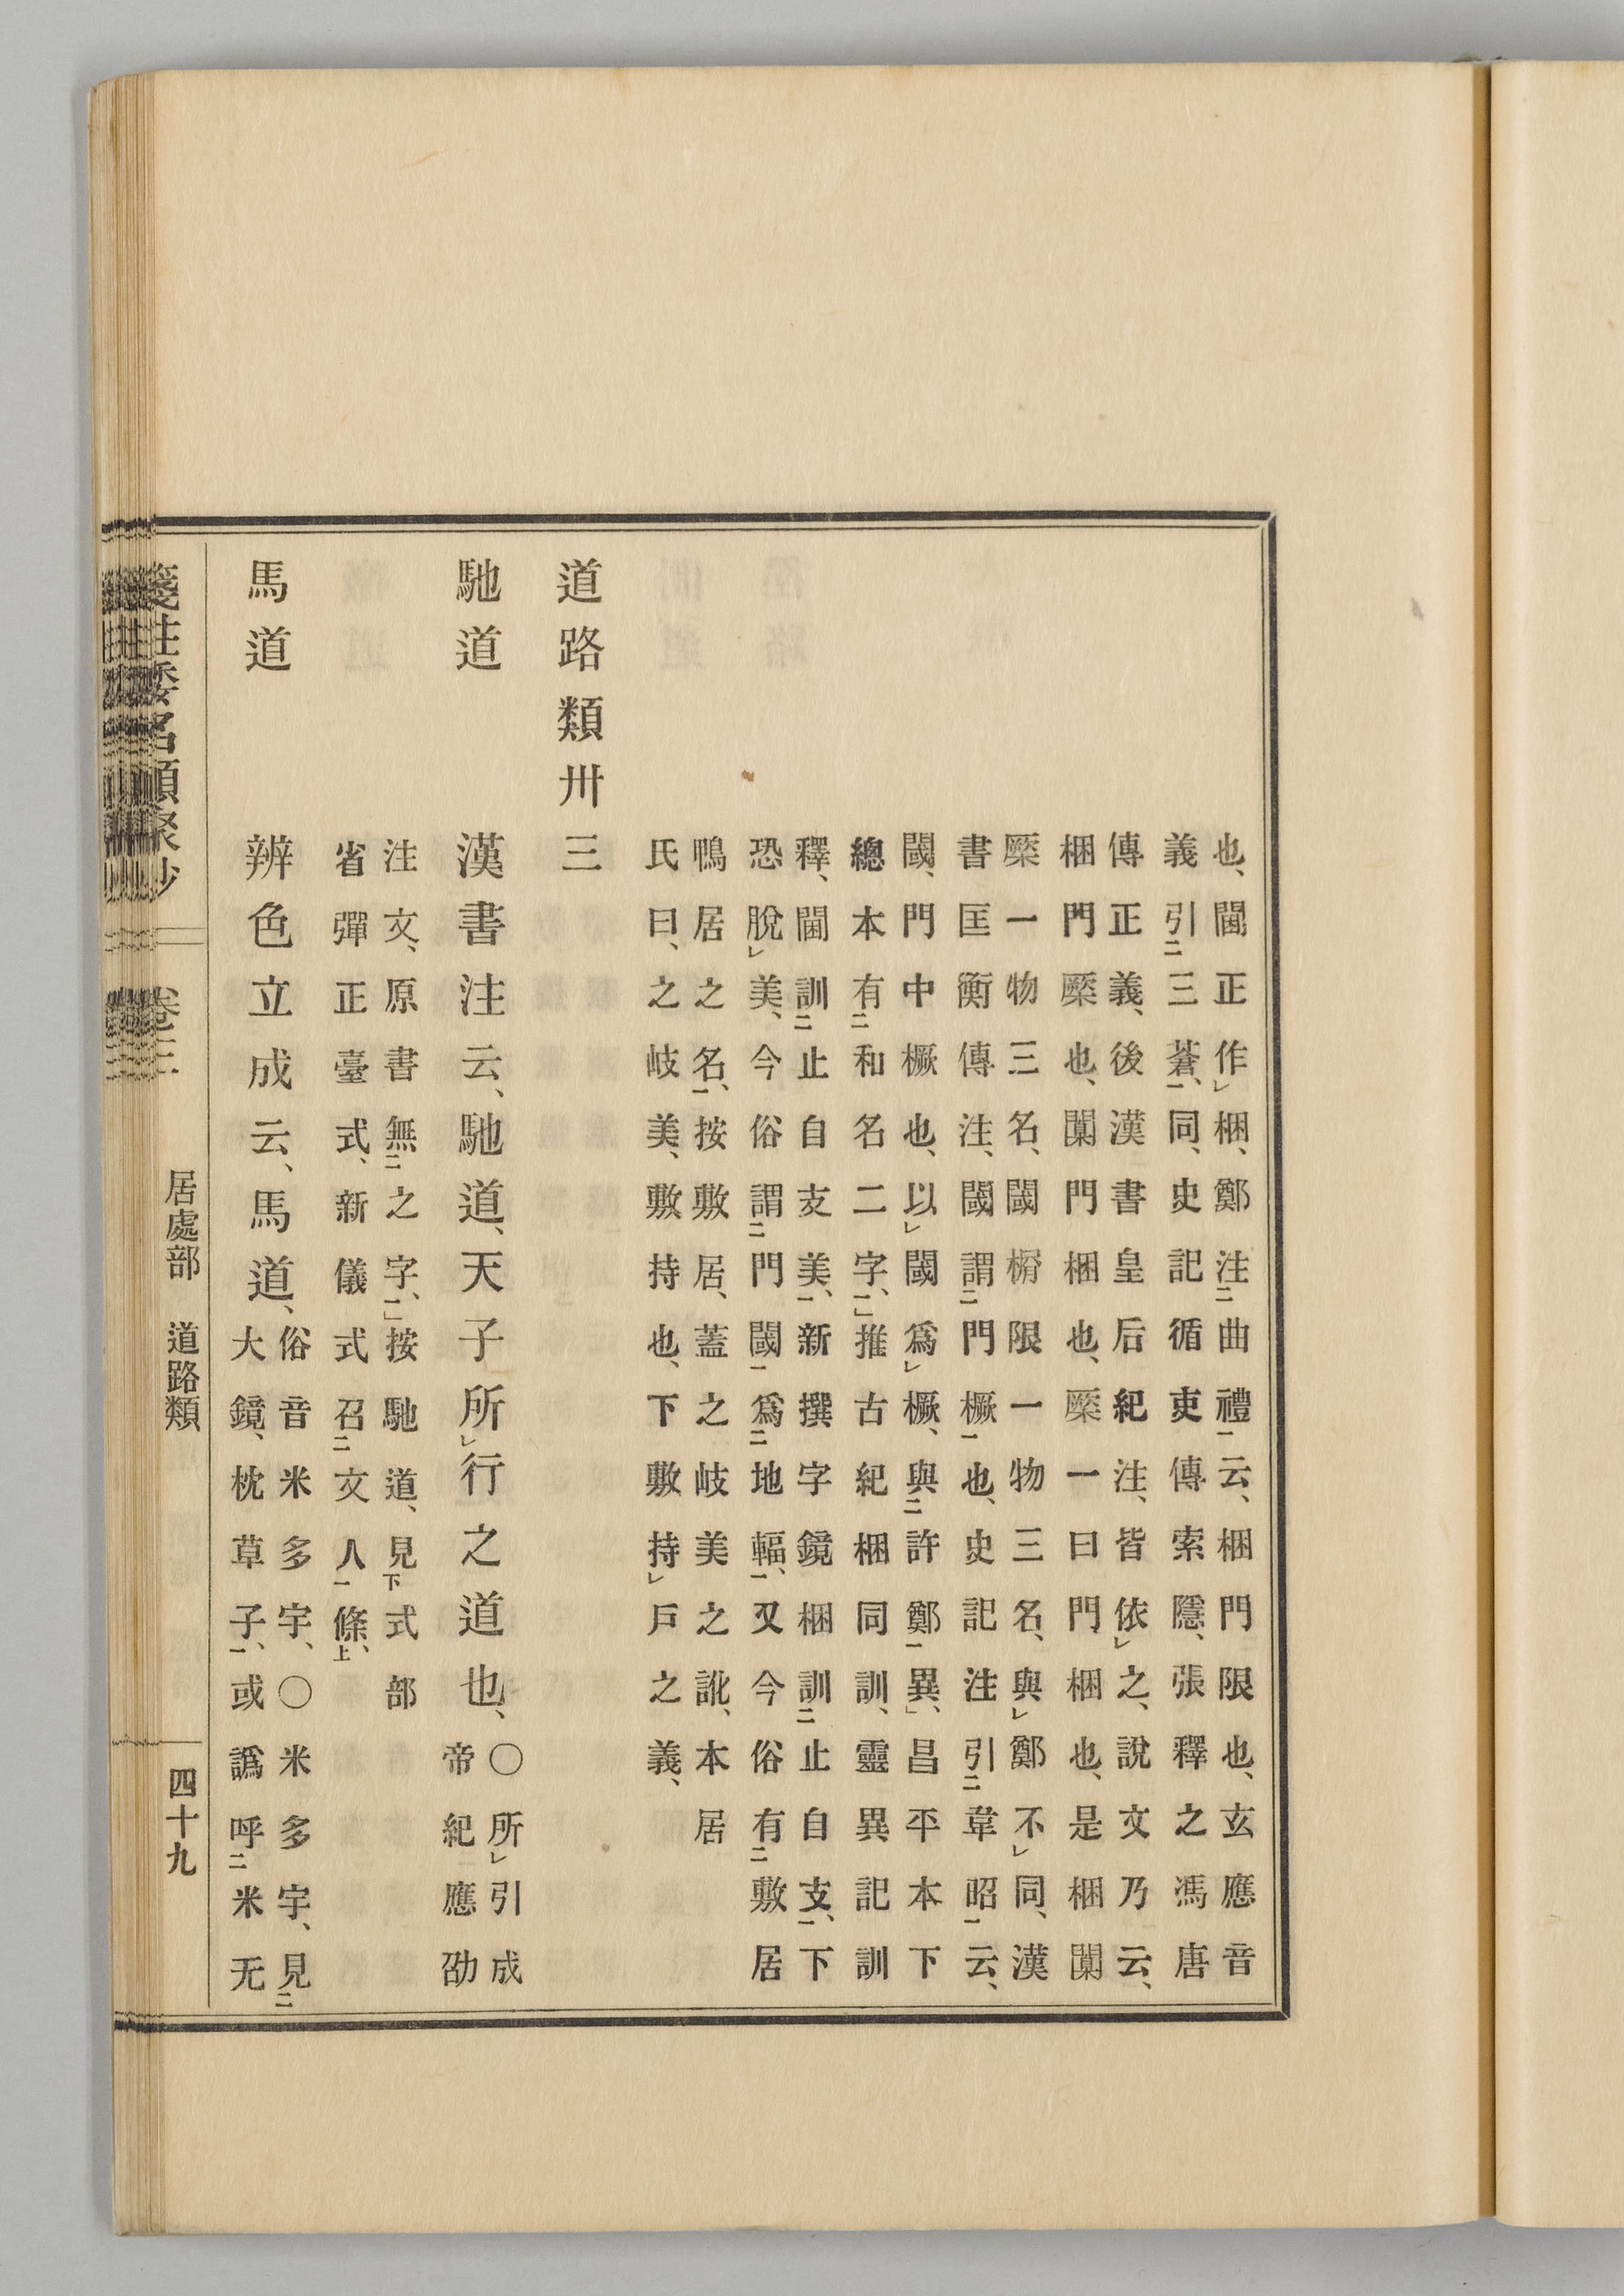 也、閫正作㆑梱、鄭注㆓曲禮㆒云、梱門限也、玄應音
義引㆓三蒼㆒、同、史記循吏傳索隱、張釋之馮唐
傳正義、後漢書皇后紀注、皆依㆑之、說文乃云、
梱門橜也、闑門梱也、橜一曰門梱也、是梱闑
橜一物三名、閾榍限一物三名、與㆑鄭不㆑同、漢
書匡衡傳注、閾謂㆓門橛㆒也、史記注引㆓韋昭㆒云、
閾、門中橛也、以㆑閾爲㆑橛、與㆓許鄭㆒異」、昌平本下
總本有㆓和名二字、㆒」推古紀梱同訓、靈異記訓
釋、閫訓㆓止自支美㆒、新撰字鏡梱訓㆓止自支㆒、下
恐脫㆑美、今俗謂㆓門閾㆒爲㆓地輻㆒、又今俗有㆓敷居
鴨居之名㆒、按敷居、蓋之岐美之訛、本居
氏曰、之岐美、敷持也、下敷持㆑戶之義、
道路類卅三
馳道　漢書注云、馳道、天子所㆑行之道也、
〇所㆑引成
帝紀應劭
注文、原書無㆓之字、㆒」按馳道、見㆘式部
省彈正臺式、新儀式召㆓文人㆒條、㆖
馬道　辨色立成云、馬道、
俗音米多宇、〇米多宇、見㆓
大鏡、枕草子㆒、或譌呼㆓米无
居處部　道路類
四十九